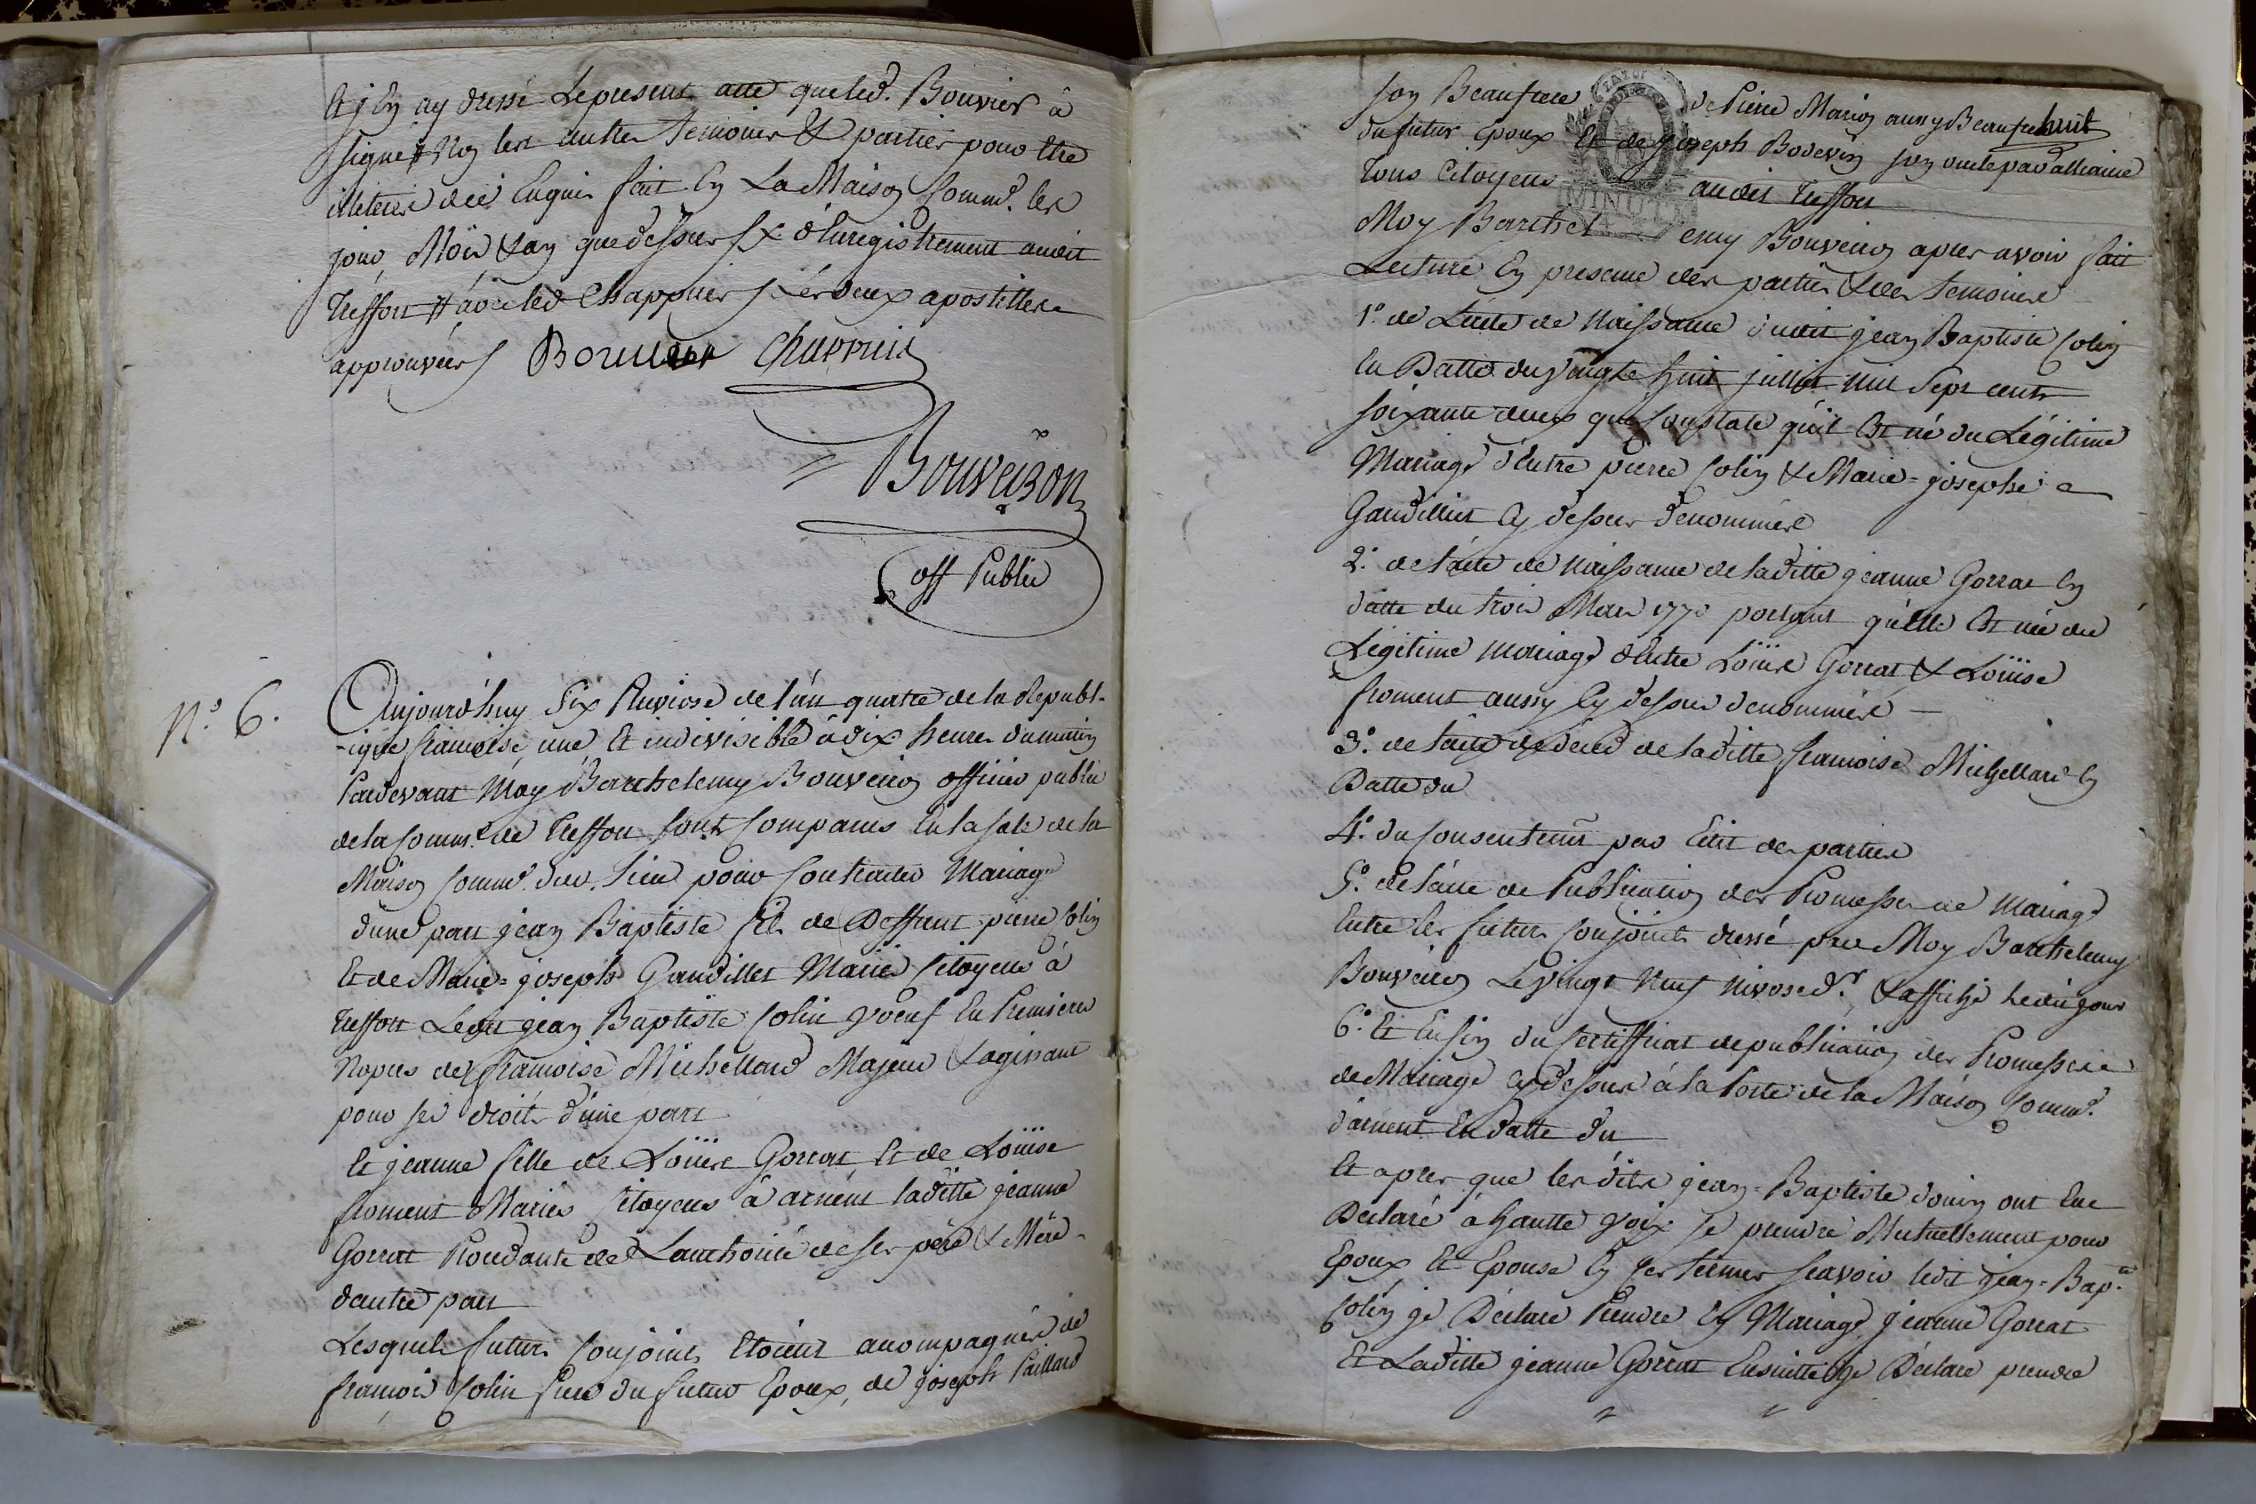 Et j'En ay dressé Le present acte que led. Bouvier à
signé # Non les autres temoins & parties pour être
illeterés dce Enquis fait En La Maison Comm.e les
jour Mois & an que dessus sx d'Enregistrement audit
Treffort # avec led Chappuis / les deux apostilles
approuvées / Bouvier Chappuis
Bouveiron
off Public
N.o 6.
Aujourd'huy Six Pluviose de l'an quatre de la Republ-
-ique francoise, une Et indivisible à dix heures du matin
Pardevant Moy Barthelemy Bouveiron officier public
de la Comm.e de Treffort sont Comparus En la sale de la
Maison Comm.e dud. Lieu pour Contracter Mariage
d'une part jean Baptiste fils de Deffunt pierre Colin
Et de Marie=joseph Gaudillet Mariés Citoyens à
Treffort Ledit jean Baptiste Colin Voeuf En Premieres
Nopces de françoise Michellard Majeur & agissant
pour ses droits d'une part
Et jeanne fille de Loüis Gorrat Et de Loüise
froment Mariés Citoyens à arnent laditte jeanne
Gorrat Procedante de L'authorité de ses père & Mère
dautre part
Lesquels futurs Conjoints Etoient accompagnés de
francois Colin frere du futur Epoux, de joseph Paillard
huit
son Beaufrere de Pierre Marion aussy Beaufrere
du futur Epoux Et de joseph Bodevin son oncle par alliance
Tous Citoyens audit Treffort
MINUTE
Moy Barthelemy Bouveiron apres avoir fait
Lecture En presence des parties & des temoins
1.o de L'acte de Naissance dudit jean Baptiste Colin
En Datte du Vingt huit juillet mil Sept cents
soixante deux qui Constate qu'il Est né du Légitime
Mariage d'Entre pierre Colin & Marie=josephe
Gaudillet Cy dessus denommés
2.o de l'acte de Naissance de laditte jeanne Gorrat En
datte du trois Mars 1770 portant qu'elle Est née du
Légitime mariage d'Entre Loüis Gorrat & Loüise
froment aussy Cy dessus denommés
3.o de l'acte de décès de laditte francoise Michellard En
Datte du
4.o du Consentem.t par Ecrit des parties
5.o de l'acte de Publication des Promesses de Mariage
Entre les futurs Conjoints dressé par Moy Barthelemy
Bouveiron Le Vingt Neuf Nivose d.r & affiché ledit jour
6.o Et Enfin du Certifficat de publication des Promesses
de Mariage cy dessus à la Porte de la Maison Comm.e
d'arnent En datte du
Et apres que les dits jean=Baptiste Et Jeanne ont Eue
Déclaré à hautte Voix se prendre Mutuellement pour
Epoux Et Epouse En ces termes scavoir ledit jean=Bap.te
Colin je Déclare Prendre En Mariage jeanne Gorrat
Et Laditte jeanne Gorrat Ensuitte je Déclare prendre